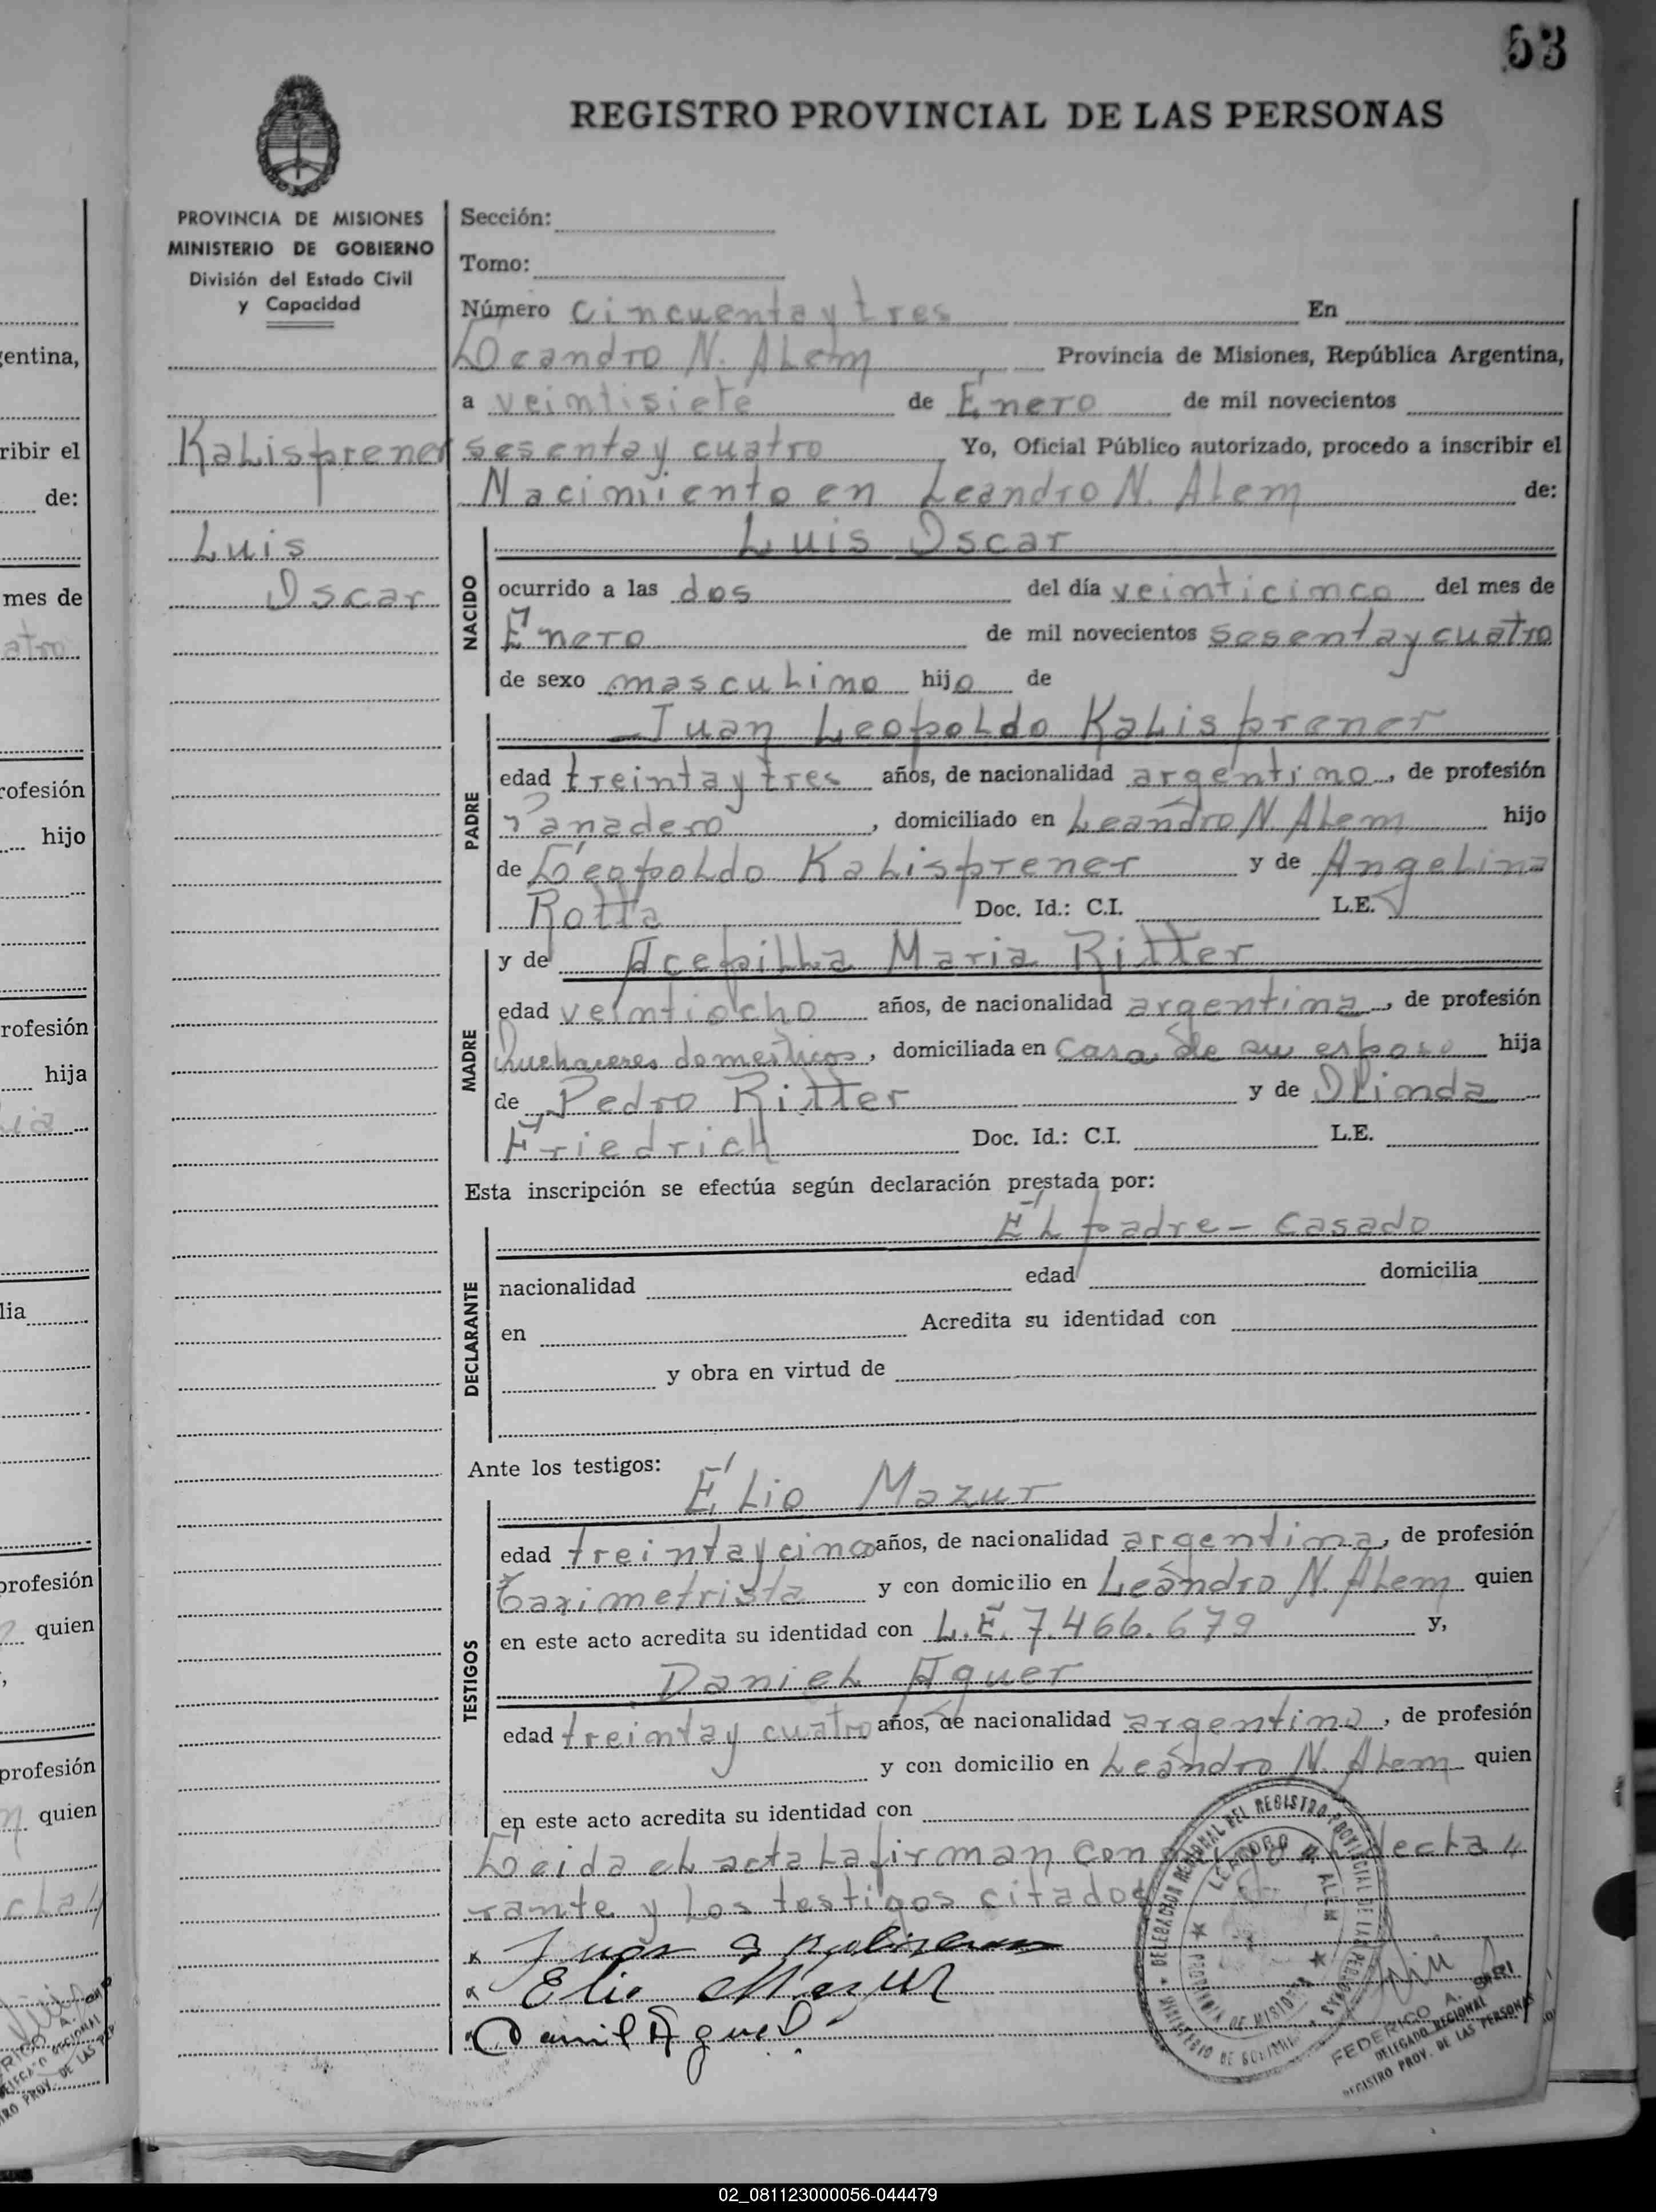 53
REGISTRO PROVINCIAL DE LAS PERSONAS
PROVINCIA DE MISIONES
MINISTERIO DE GOBIERNO
División del Estado Civil
y Capacidad
Kalisprener
Luis
Oscar
Sección:
Tomo:
Número cincuenta y tres En
Leandro N. Alem Provincia de Misiones, República Argentina,
a veintisiete de Enero de mil novecientos
sesenta y cuatro Yo, Oficial Público autorizado, procedo a inscribir el
Nacimiento en Leandro N. Alem de:
Luis Oscar
NACIDO
ocurrido a las dos del día veinticinco del mes de
Enero de mil novecientos sesenta y cuatro
de sexo masculino hijo de
Juan Leopoldo Kalisprener
PADRE
edad treinta y tres años, de nacionalidad argentino, de profesión
Panadero, domiciliado en Leandro N. Alem hijo
de Leopoldo Kalisprener y de Angelina
Rotta Doc. Id.: C.I. L.E.
y de Acepilla Maria Ritter
MADRE
edad veintiocho años, de nacionalidad argentina, de profesión
Quehaceres domesticos, domiciliada en casa de su esposo hija
de Pedro Ritter y de Olinda
Friedrich Doc. Id.: C.I. L.E.
Esta inscripción se efectúa según declaración prestada por:
El padre - casado
DECLARANTE
nacionalidad edad domicilia
en Acredita su identidad con
y obra en virtud de
Ante los testigos:
Elio Mazur
TESTIGOS
edad treinta y cinco años, de nacionalidad argentina, de profesión
Taximetrista y con domicilio en Leandro N. Alem quien
en este acto acredita su identidad con L.E. 7.466.679 y,
Daniel Aguer
edad treinta y cuatro años, de nacionalidad argentino, de profesión
y con domicilio en Leandro N. Alem quien
en este acto acredita su identidad con
Leida el acta la firman con el decla
rante y los testigos citados
Juan
Elio Mazur
Daniel Aguer
DELEGACION REGIONAL DEL REGISTRO PROVINCIAL DE LAS PERSONAS
LEANDRO N. ALEM
PROVINCIA DE MISIONES
MINISTERIO DE GOBIERNO
FEDERICO A.
DELEGADO REGIONAL
REGISTRO PROV. DE LAS PERSONAS
02_081123000056-044479